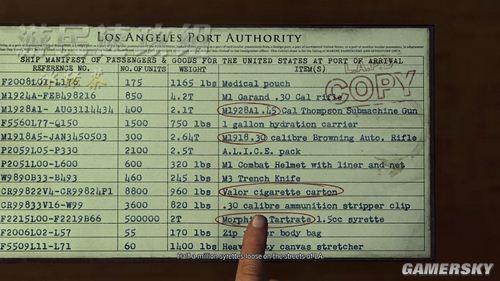 LOS ANGELES PORT AUTHORITY
SHIP MANIFEST OF PASSENGERS & GOODS FOR THE UNITED STATES AT PORT OF ARRIVAL
REFERENCE NO. NO. OF UNITS WEIGHT ITEM(S)
F2008L01-L176 175 1165 lbs Medical pouch
M1924A-FEB498216 850 4.2T M1 Garand .30 Cal rifle
M1928A1- AUG3114434 400 2.1T M1928A1.45 Cal Thompson Submachine Gun
F5560L77-Q150 1500 750 lbs 1 gallon hydration carrier
M1918A5-JAN3450503 300 2.64T M1918.30 calibre Browning Auto. Rifle
P2059L05-P330 2100 2.5T A.L.I.C.E. pack
P2051L00-L600 600 320 lbs M1 Combat Helmet with liner and net
W9890B33-B493 460 245 lbs M3 Trench Knife
CR99822V4-CR99824P1 8800 960 lbs Valor cigarette carton
CR99833V16-W99 3600 820 lbs .30 calibre ammunition stripper clip
F2215L00-F2219B66 500000 2T Morphine Tartrate 1.5cc syrette
F2006L02-L57 55 170 lbs body bag
F5509L11-L71 60 1400 lbs canvas stretcher
COPY
Half a million syrettes loose on the streets of LA.
GAMERSKY